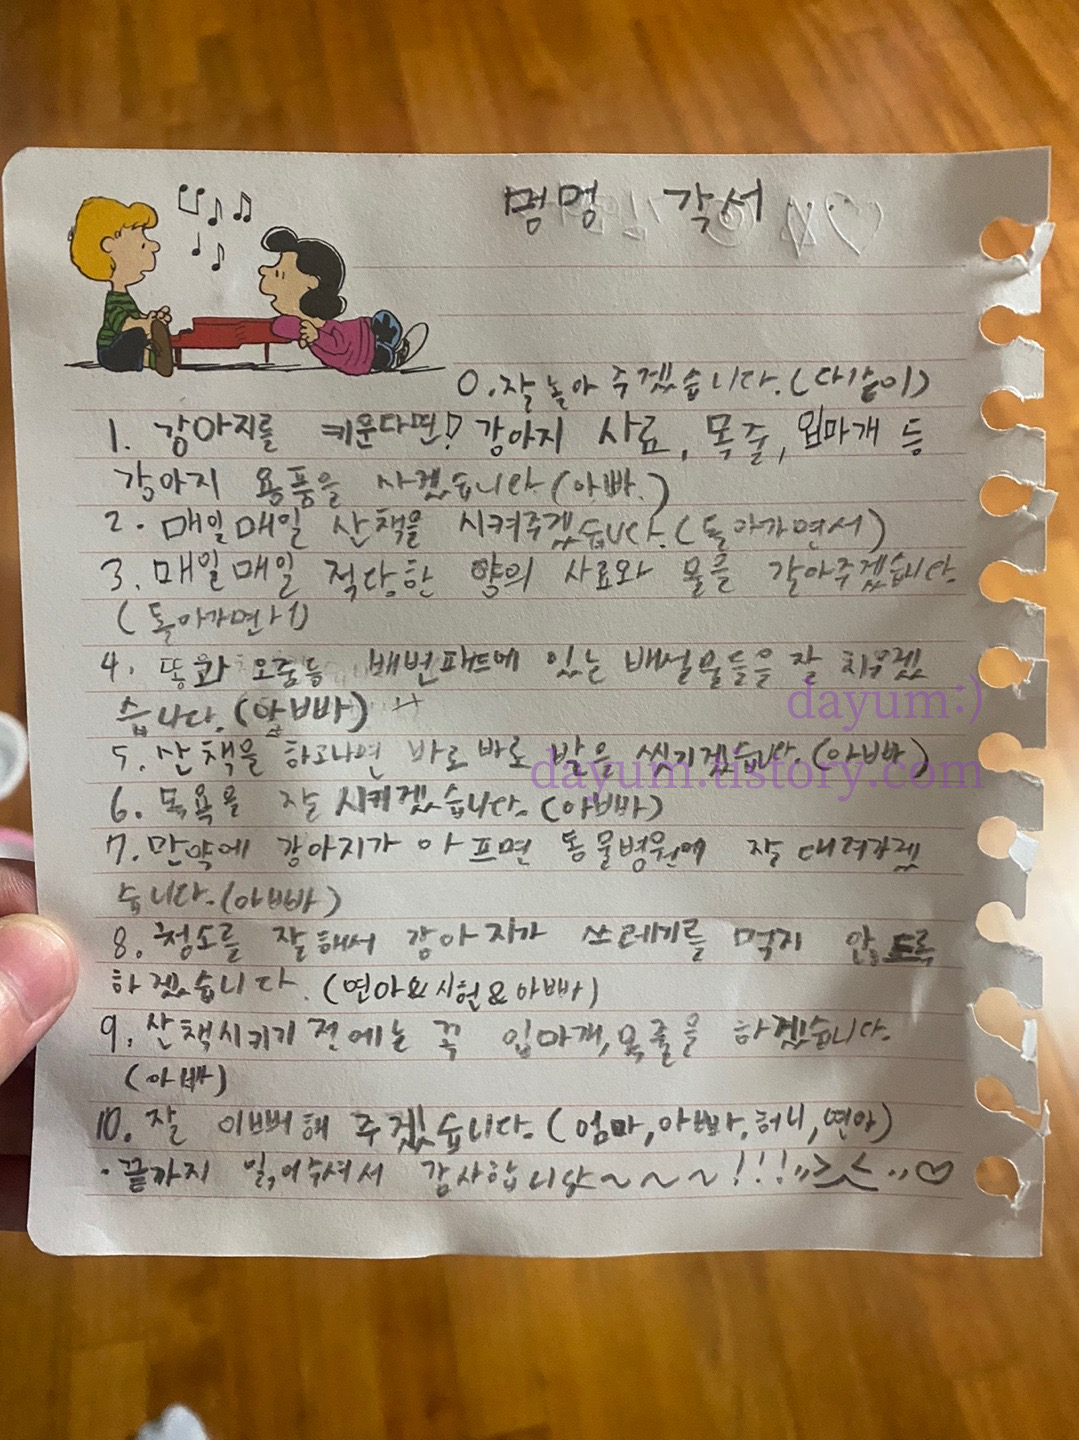 멍멍 각서
0. 잘 놀아 주겠습니다. (다같이)
1. 강아지를 키운다면? 강아지 사료, 목줄, 입마개 등
강아지 용품을 사겠습니다 (아빠.)
2. 매일매일 산책을 시켜주겠습니다. (돌아가면서)
3. 매일매일 적당한 양의 사료와 물을 갈아주겠습니다.
(돌아가면서)
4. 똥과 오줌등 배변패드에 있는 배설물들을 잘 치우겠
습니다. (아빠)
dayum:)
5. 산책을 하고나면 바로바로 발을 씻기겠습니다. (아빠)
dayum.tistory.com
6. 목욕을 잘 시키겠습니다. (아빠)
7. 만약에 강아지가 아프면 동물병원에 잘 데려가겠
습니다. (아빠)
8. 청소를 잘해서 강아지가 쓰레기를 먹지 않도록
하겠습니다. (연아&시헌&아빠)
9. 산책시키기 전에는 꼭 입마개, 목줄을 하겠습니다.
(아빠)
10. 잘 이뻐해 주겠습니다. (엄마, 아빠, 허니, 연아)
· 끝까지 읽어주셔서 감사합니다~~~!!!,,>_<,,♡